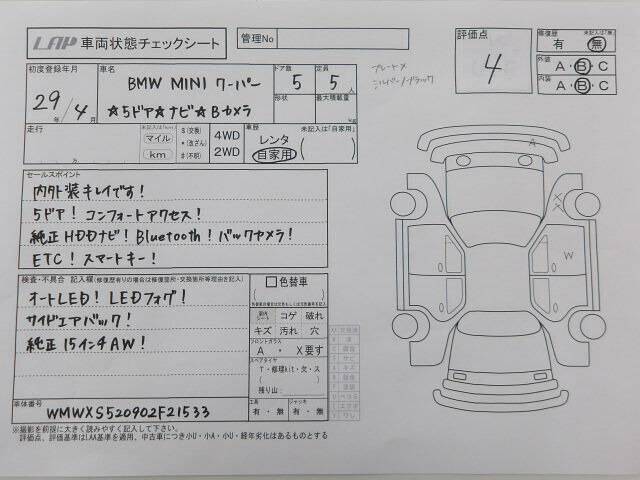 LAP 車両状態チェックシート
管理No
評価点
4
修復歴 未記入は「無」
有 無
外装 A・B・C
内装 A・B・C
初度登録年月
29年/4月
車名
BMW MINI クーパー
★5ドア★ナビ★Bカメラ
ドア数
5
定員
5人
形状
最大積載量
kg
プレートX
シルバー/ブラック
走行
未記入は「km」
マイル
km
$ (交換)
* (改ざん)
# (不明)
4WD
2WD
車歴 未記入は「自家用」
レンタ
自家用
セールスポイント
内外装キレイです!
5ドア! コンフォートアクセス!
純正HDDナビ! Bluetooth! バックカメラ!
ETC! スマートキー!
検査・不具合 記入欄(修復歴有りの場合は修復箇所・交換箇所等理由を記入)
オートLED! LEDフォグ!
サイドエアバック!
純正15インチAW!
色替車
コゲ 破れ
キズ 汚れ 穴
フロントガラス
A ・ X要す
スペアタイヤ
T・修理kit・欠・ス
残り山:
工具
有・無
ジャッキ
有・無
車体番号
WMWXS520902F21533
※撮影を前提に大きく読みやすく記入して下さい。
評価点、評価基準はLAK基準を適用、中古車につき小U・小A・小U・経年劣化はあるものとする
A
X
X
W